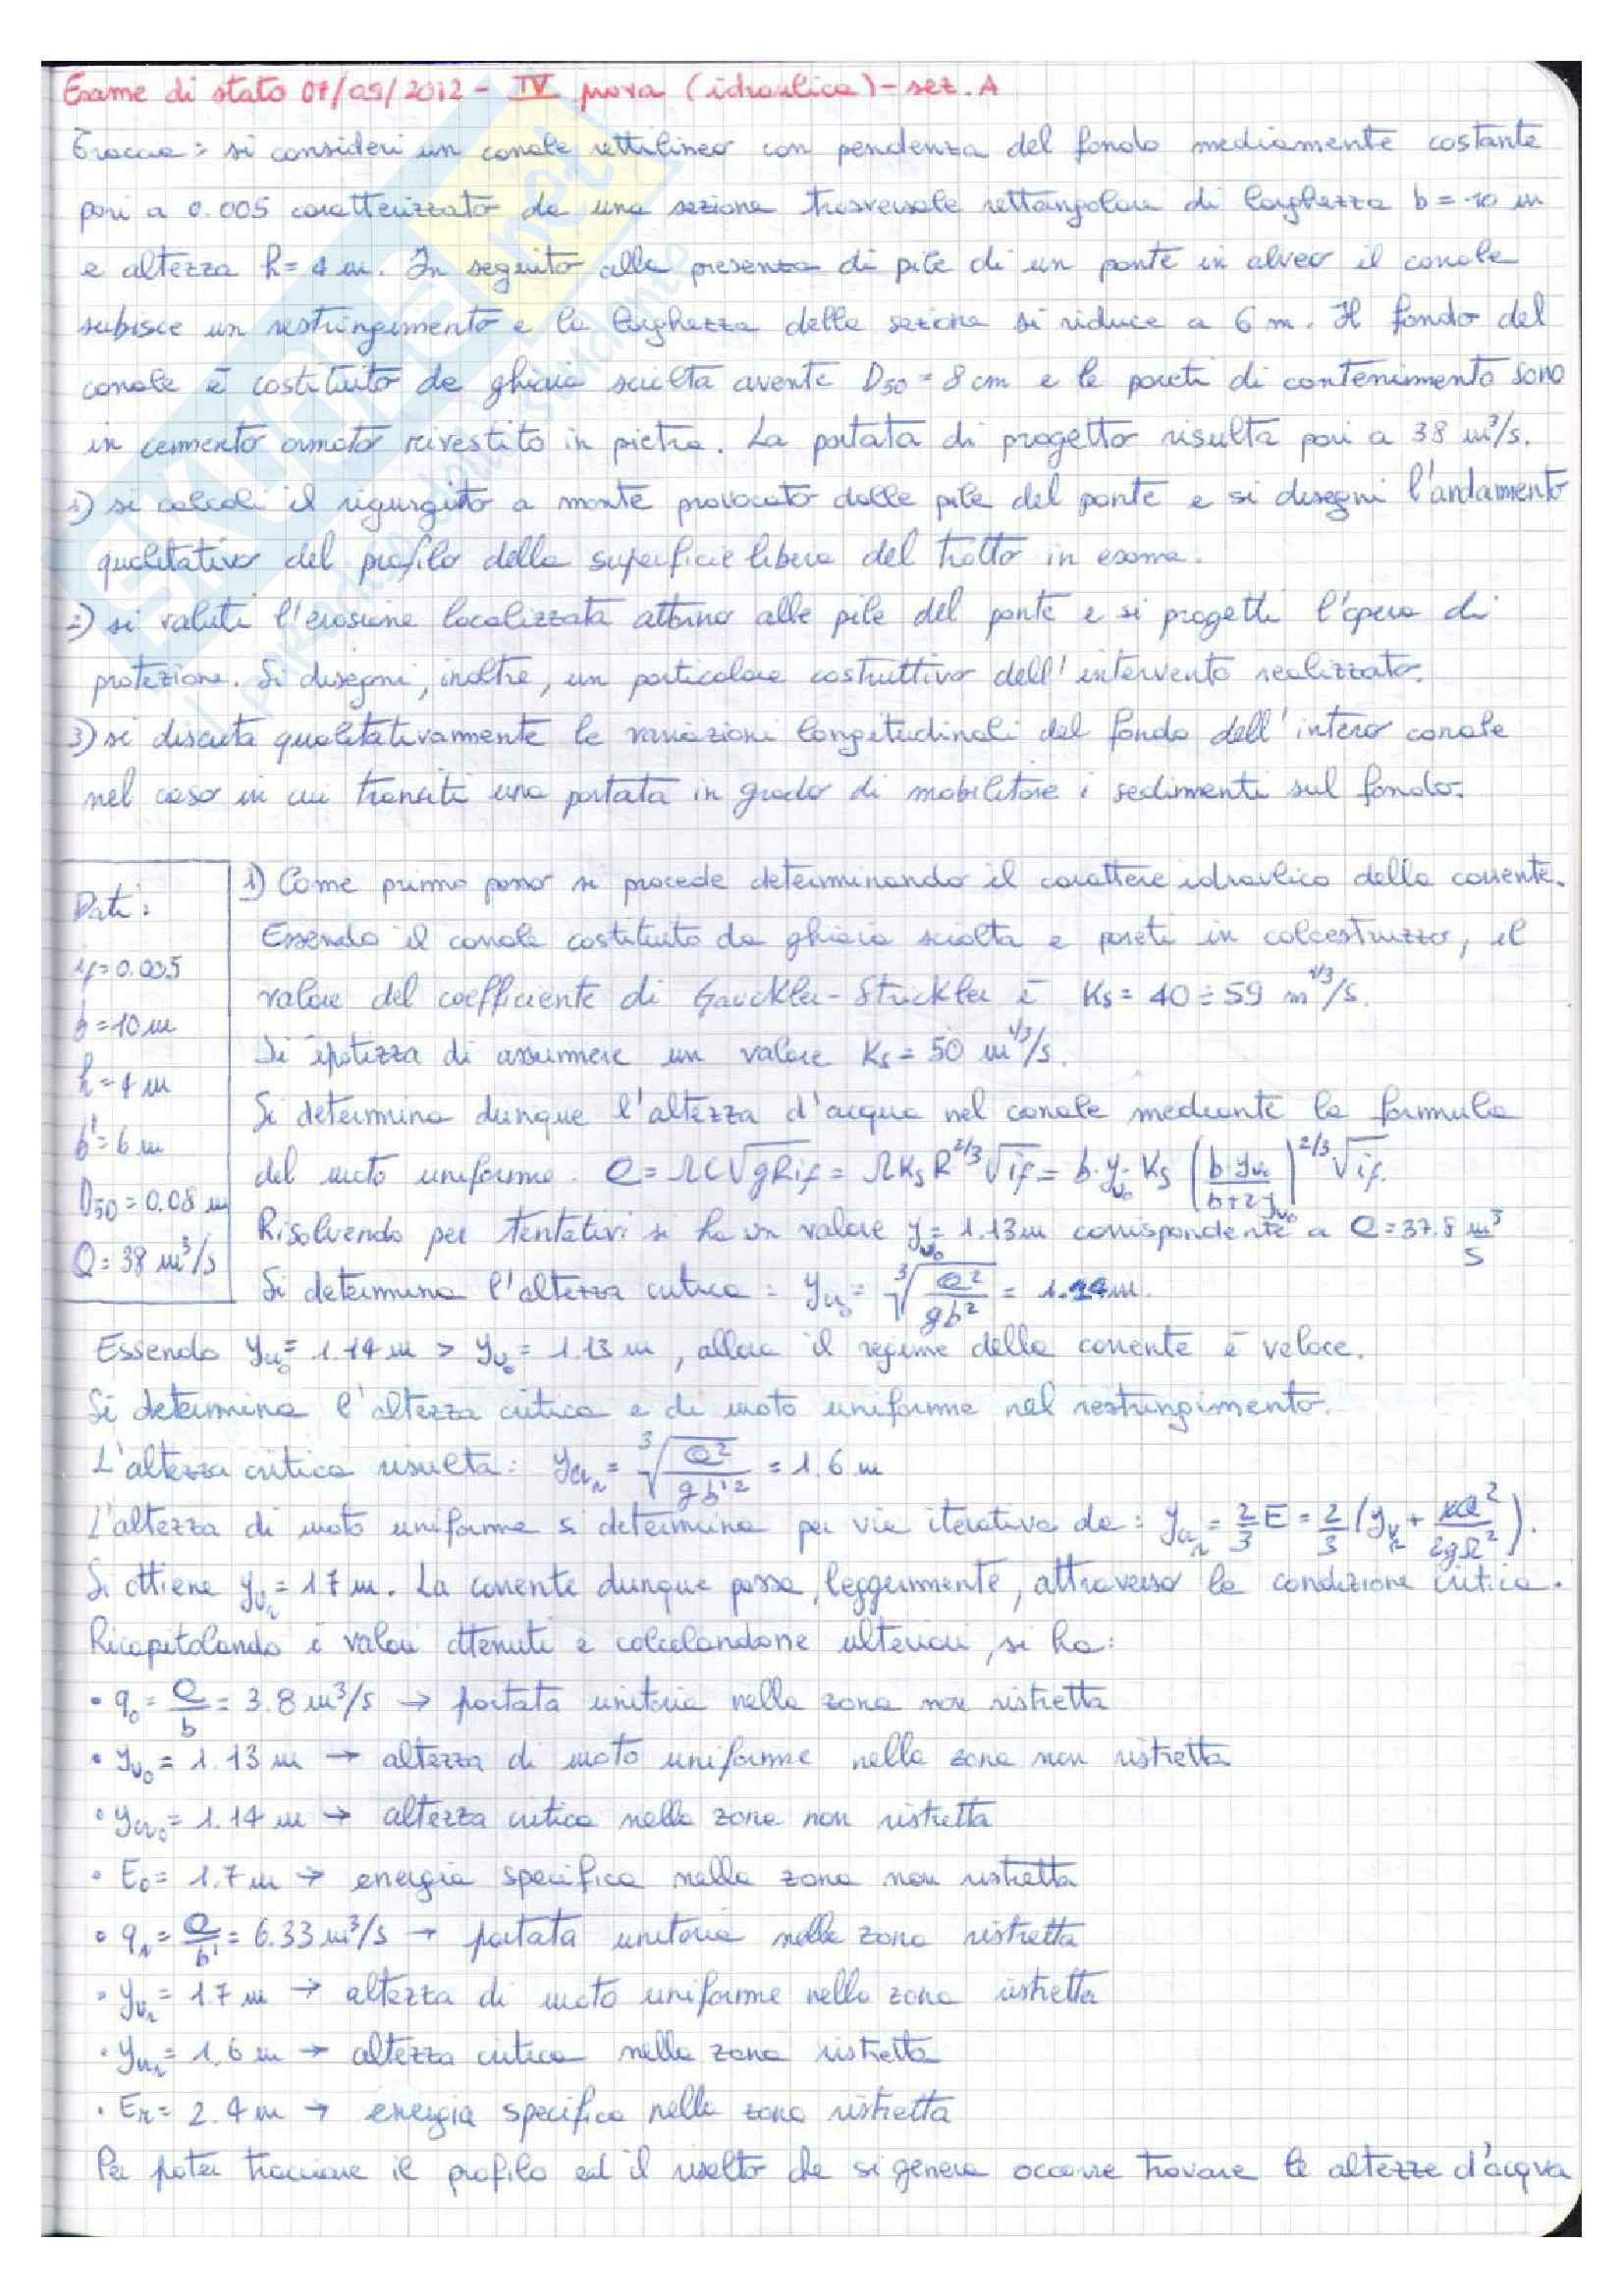 Esame di stato 07/09/2012 - IV prova (idraulica) - sez. A
Traccia: si consideri un canale rettilineo con pendenza del fondo mediamente costante
pari a 0.005 caratterizzato da una sezione trasversale rettangolare di larghezza b = 10 m
e altezza h = 4 m. In seguito alla presenza di pile di un ponte in alveo il canale
subisce un restringimento e la larghezza della sezione si riduce a 6 m. Il fondo del
canale è costituito da ghiaia sciolta avente D50 = 8 cm e le pareti di contenimento sono
in cemento armato rivestito in pietra. La portata di progetto risulta pari a 38 m³/s.
1) si calcoli il rigurgito a monte provocato dalle pile del ponte e si disegni l'andamento
qualitativo del profilo della superficie libera del tratto in esame.
2) si valuti l'erosione localizzata attorno alle pile del ponte e si progetti l'opera di
protezione. Si disegni, inoltre, un particolare costruttivo dell'intervento realizzato.
3) si discuta qualitativamente le variazioni longitudinali del fondo dell'intero canale
nel caso in cui transiti una portata in grado di mobilitare i sedimenti sul fondo.
Dati:
if = 0.005
b = 10 m
h = 4 m
b' = 6 m
D50 = 0.08 m
Q = 38 m³/s
1) Come primo passo si procede determinando il carattere idraulico della corrente.
Essendo il canale costituito da ghiaia sciolta e pareti in calcestruzzo, il
valore del coefficiente di Gauckler-Strickler è Ks = 40 ÷ 59 m^1/3/s.
Si ipotizza di assumere un valore Ks = 50 m^1/3/s.
Si determina dunque l'altezza d'acqua nel canale mediante la formula
del moto uniforme. Q = ΩC√gRif = ΩKs R^2/3 √if = b·yu0 Ks (b·yu0/b+2yu0)^2/3 √if.
Risolvendo per tentativi si ha un valore yu0 = 1.13 m corrispondente a Q = 37.8 m³/s
Si determina l'altezza critica: ycr0 = ³√Q²/gb² = 1.14 m.
Essendo ycr0 = 1.14 m > yu0 = 1.13 m, allora il regime della corrente è veloce.
Si determina l'altezza critica e di moto uniforme nel restringimento.
L'altezza critica risulta: ycrr = ³√Q²/gb'² = 1.6 m
L'altezza di moto uniforme si determina per via iterativa da: ycrr = 2/3 E = 2/3 (yur + αQ²/2gΩ²).
Si ottiene yur = 1.7 m. La corrente dunque passa, leggermente, attraverso la condizione critica.
Ricapitolando i valori ottenuti e calcolandone ulteriori, si ha:
• q0 = Q/b = 3.8 m³/s → portata unitaria nella zona non ristretta
• yu0 = 1.13 m → altezza di moto uniforme nella zona non ristretta
• ycr0 = 1.14 m → altezza critica nella zona non ristretta
• E0 = 1.7 m → energia specifica nella zona non ristretta
• qr = Q/b' = 6.33 m³/s → portata unitaria nella zona ristretta
• yur = 1.7 m → altezza di moto uniforme nella zona ristretta
• ycrr = 1.6 m → altezza critica nella zona ristretta
• Er = 2.4 m → energia specifica nella zona ristretta
Per poter tracciare il profilo ed il risalto che si genera occorre trovare le altezze d'acqua